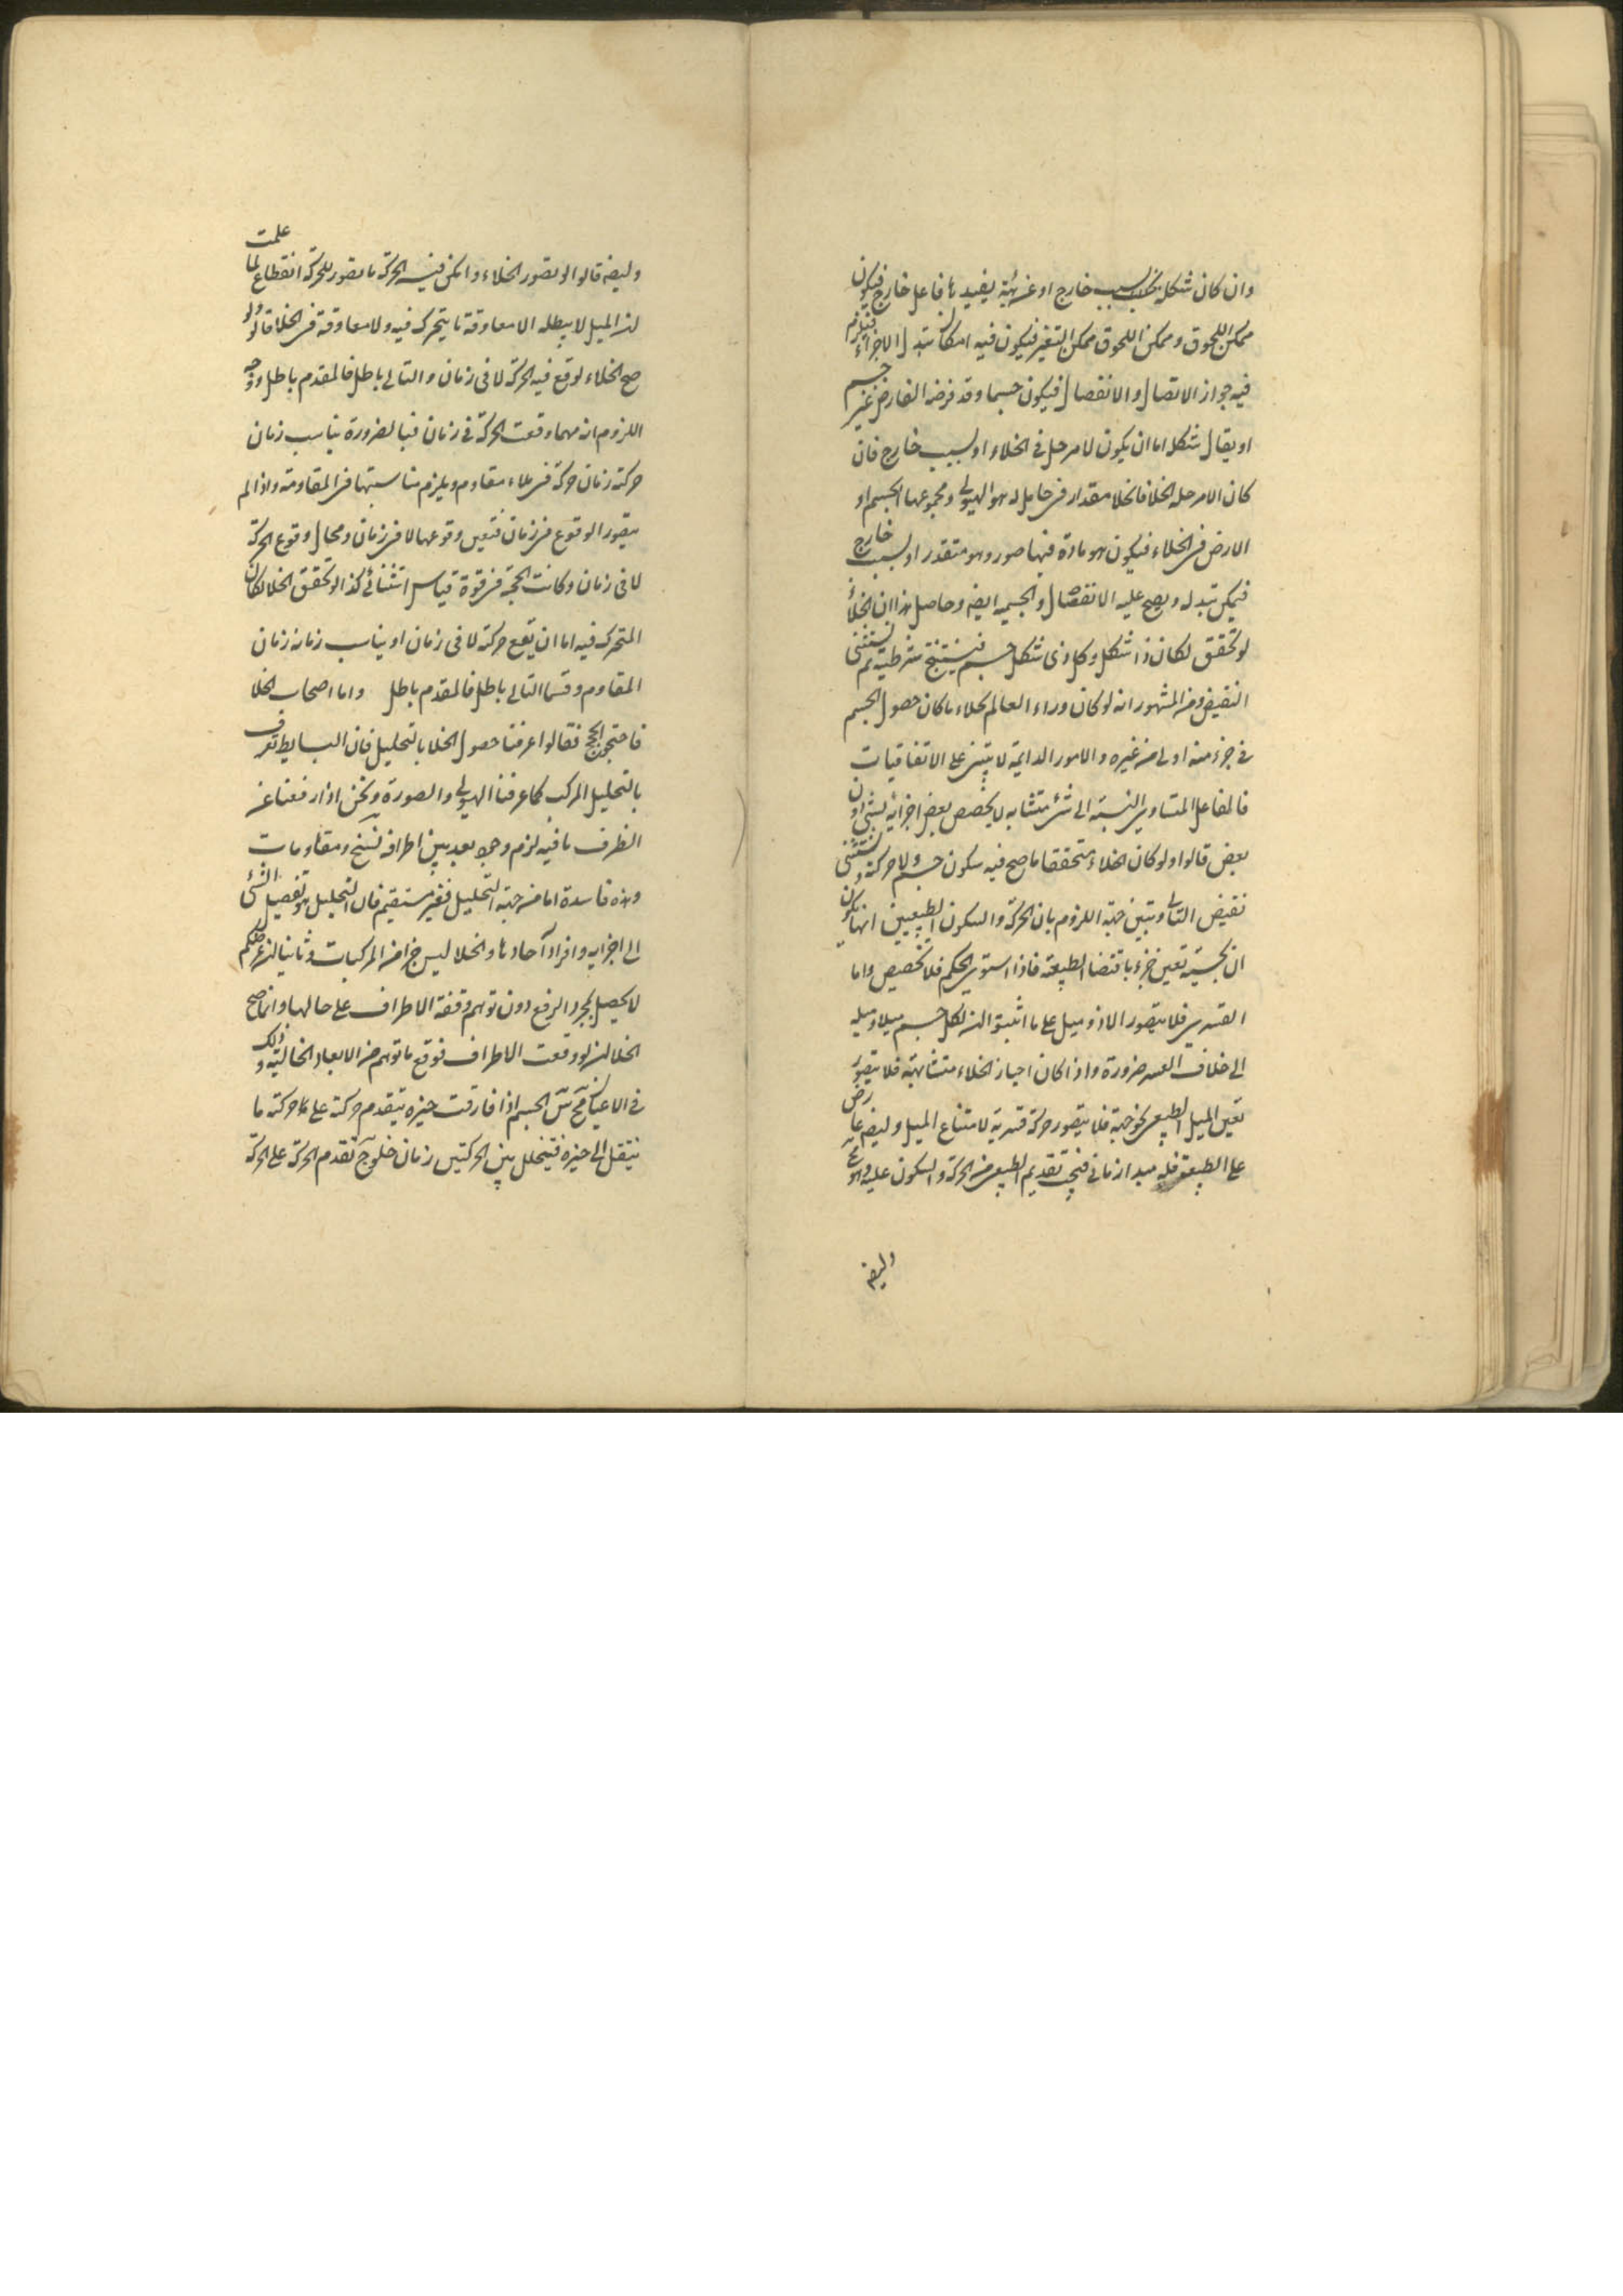 وان كان شكله بسبب خارج او غريبة يفيدها فاعل خارج فيكون
ممكن اللحوق وممكن اللحوق ممكن التغير فيكون فيه امكان تبدل الاجزاء فيلزم
فيه جواز الاتصال والانفصال فيكون جسما وقد فرضه الفارض غير جسم
او يقال شكله اما ان يكون لامر حل في الخلاء او لسبب خارج فان
كان الامر حله الخلا فالخلا مقدار في حامل له هو الهيولى ومجموعها الجسم او
الارض في الخلاء فيكون هو مادة فيها صور وهو متقدر او لسبب خارج
فيمكن تبدله ويصح عليه الانفصال والجسمية ايضه وحاصل هذا ان الخلأ
لو تحقق لكان ذا شكل وكل ذى شكل جسم فينتج شرطية ثم نستثنى
النقيض ومن المشهور انه لو كان وراء العالم خلاء ما كان حصول الجسم
في جزء منه اولى من غيره والامور الدايمة لا يبتنى على الاتفاقيات
فالفاعل المتساوى النسبة الى شئ متشابه لا يخصص بعض اجزائه بشئ دون
بعض قالوا ولو كان الخلاء متحققا ما صح فيه سكون جسم ولا حركته ونستثنى
نقيض التالى ويتبين جهة اللزوم بان الحركة والسكون الطبيعيين انما يكون
ان بحسبه تعين جزء باقتضا الطبيعة فاذا استوى الحكم فلا تخصيص واما
القسرى فلا يتصور الا ذو ميل على ما اثبتوا ان لكل جسم ميلا وميله
الى خلاف القسر ضرورة واذا كان احياز الخلاء متشابهة فلا يتصور
تعين الميل الطبيعى نحو جهة فلا يتصور حركة قسرية لامتناع الميل وليضه عارض
على الطبيعة فله مبدا زمانى فيجب تقديم الطبيعى من الحركة والسكون عليه وهو
وليضه
وليضه قالوا لو تصور الخلاء وامكن فيه الحركة ما تصور للحركة انقطاع لما علمت
ان الميل لا يبطله الا معاوقة ما يتحرك فيه ولا معاوقة في الخلا قالوا ولو
صح الخلاء لوقع فيه الحركة لا فى زمان والتالى باطل فالمقدم باطل ووجه
اللزوم انه مهما وقعت الحركة في زمان فبالضرورة يناسب زمان
حركته زمان حركة في ملاء مقاوم ويلزم مناسبتها في المقاومة واذا لم
يتصور الوقوع في زمان فتعين وقوعها لا في زمان ومحال وقوع الحركة
لا فى زمان وكانت الحجة في قوة قياس استثنائى كذا لو تحقق الخلا لكان
المتحرك فيه اما ان يقع حركته لا فى زمان او يناسب زمانه زمان
المقاوم وقسما التالى باطل فالمقدم باطل واما اصحاب الخلا
فاحتجوا بحجج فقالوا عرفنا حصول الخلا بالتحليل فان البسايط تعرف
بالتحليل المركب كما عرفنا الهيولى والصورة ونحن اذا رفعنا عن
الظرف ما فيه لزم وجود بعد بين اطرافه نسخ ومقاومات
وهذه فاسدة اما من جهة التحليل فغير مستقيم فان التحليل هو تفصيل الشئ
الى اجزايه وافراد آحادها والخلا ليس جزا من المركبات وثانيا ان غرضكم
لا يحصل بمجرد الرفع دون توهم وقفة الاطراف على حالها وانما صح
الخلا ان لو وقفت الاطراف فوقع ما توهم من الابعاد الخالية وذلك
في الاعيان مح ش الجسم اذا فارقت حيزه يتقدم حركته على حركة ما
ينتقل الى حيزه فيتخلل بين الحركتين زمان خلو ج تقدم الحركة على الحركة